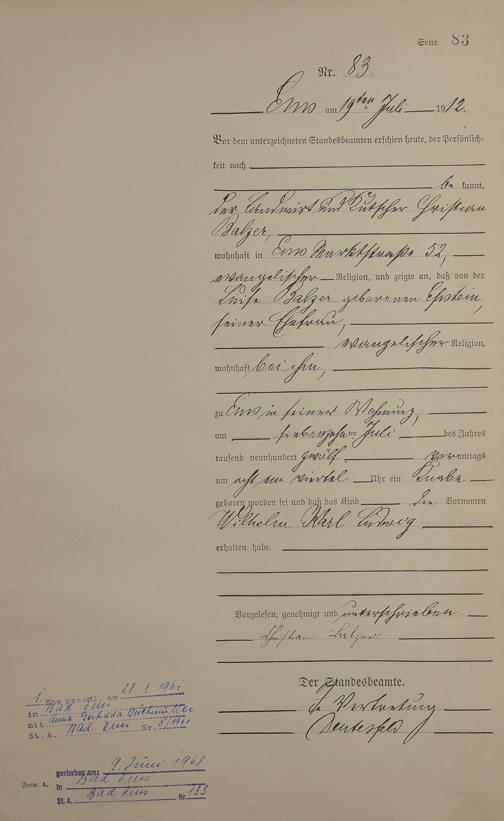 Seite 83
Nr. 83.
Ems am 19ten Juli 1912.
Vor dem unterzeichneten Standesbeamten erschien heute, der Persönlich-
keit nach
be kannt,
der Landwirt und Kutscher Christian
Balzer,
wohnhaft in Ems Marktstraße 52,
evangelischer Religion, und zeigte an, daß von der
Luise Balzer geborenen Epstein,
seiner Ehefrau,
evangelischer Religion,
wohnhaft bei ihm,
zu Ems in seiner Wohnung,
am siebenzehnten Juli des Jahres
tausend neunhundert zwölf vormittags
um acht ein viertel Uhr ein Knabe
geboren worden sei und daß das Kind die Vornamen
Wilhelm Karl Ludwig
erhalten habe.
Vorgelesen, genehmigt und unterschrieben
Christian Balzer
Der Standesbeamte.
In Vertretung
1. Ehe geschl. am 28.1.1961
in Bad Ems
mit Anna Gertruda
St. A. Bad Ems Nr. 5/1961
gestorben am: 9. Juni 1968
in Bad Ems
St. A. Bad Ems Nr. 133
Form. A.